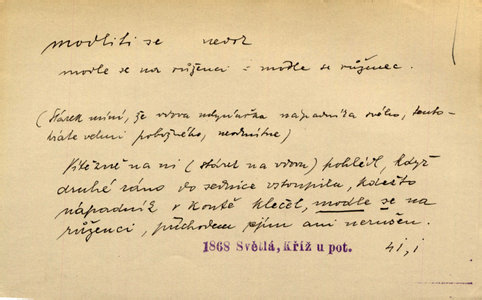 modliti se nedok
modle se na růženci = modle se růženec.
(Stárek míní, že vdova nápadníka svého, tento-
kráte velmi pobožného, neodmítne)
Vítězně na ni (stárek na vdovu) pohlédl, když
druhé ráno do sednice vstoupila, kdežto
nápadník v koutě klečel, modle se na
růženci, příchodem jejím ani nerušen.
1868 Světlá, Kříž u pot. 41, i